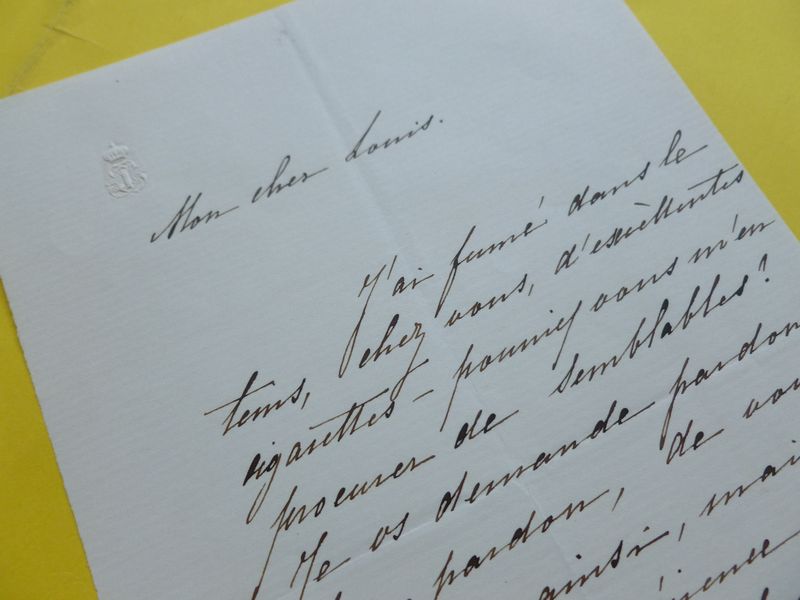 Mon cher Louis.
J'ai fumé dans le
tems, chez vous, d'excèllentes
cigarettes – pourriez vous m'en
procurer de semblables?
Je os demande pardon
pardon, de vou
ainsi, mais